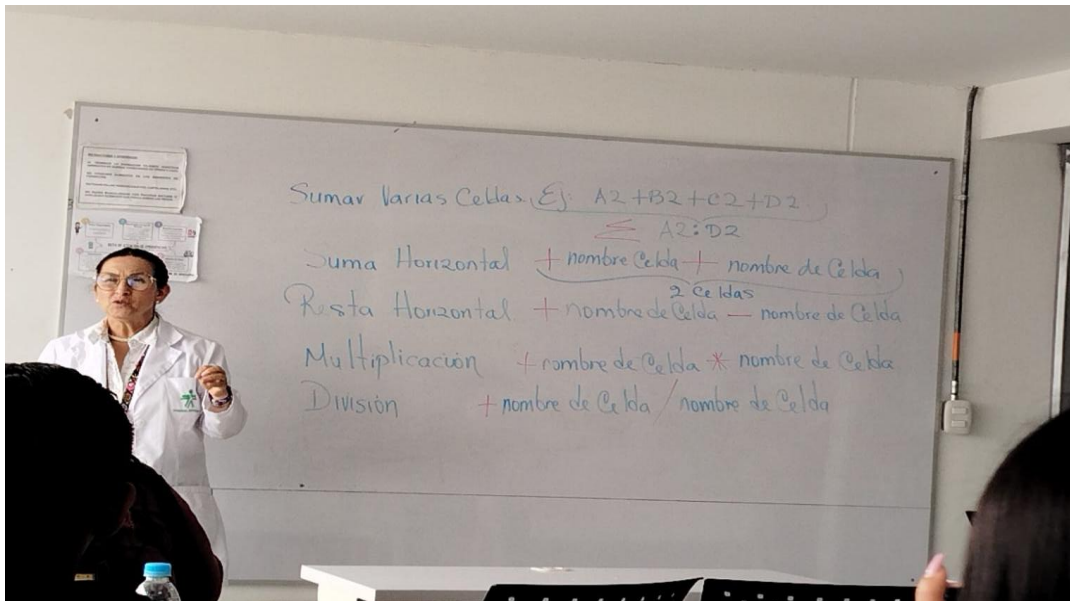 Sumar Varias Celdas. Ej: A2+B2+C2+D2
Σ A2:D2
Suma Horizontal + nombre Celda + nombre de Celda
2 Celdas
Resta Horizontal. + nombre de Celda — nombre de Celda
Multiplicación + nombre de Celda * nombre de Celda
División + nombre de Celda / nombre de Celda